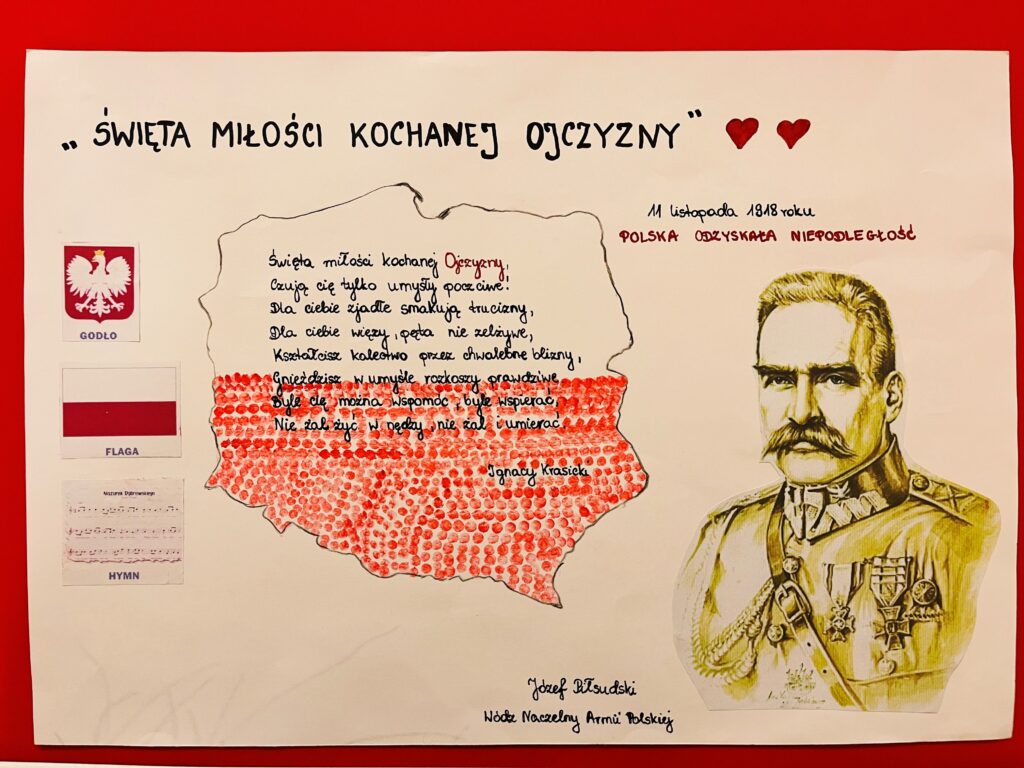 „ŚWIĘTA MIŁOŚCI KOCHANEJ OJCZYZNY”
11 listopada 1918 roku
POLSKA ODZYSKAŁA NIEPODLEGŁOŚĆ
Święta miłości kochanej Ojczyzny,
Czują cię tylko umysły poczciwe!
Dla ciebie zjadłe smakują trucizny,
Dla ciebie więzy, pęta nie zelżywe,
Kształcisz kalectwo przez chwalebne blizny,
Gnieździsz w umyśle rozkoszy prawdziwe
Byle cię można wspomóc, byle wspierać,
Nie żal żyć w nędzy, nie żal i umierać.
Ignacy Krasicki
GODŁO
FLAGA
Mazurek Dąbrowskiego
HYMN
Józef Piłsudski
Wódz Naczelny Armii Polskiej